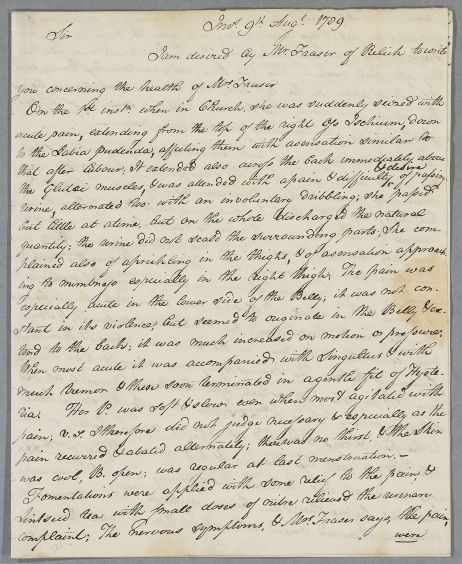 Invs. 9th Augt. 1789
Sir
I am desired by Mr Fraser of Relick to write
you concerning the health of Mrs Fraser
On the inst. when in Church, she was suddenly seized with
acute pain, extending from the top of the right Os Ischium, down
to the Labia pudenda, affecting them with a sensation similar to
that after labour. It extended also across the back immediately above
the Glutei muscles, & was attended with a pain & difficulty & desire of passing
urine, alternated too with an involuntary dribbling; she passed
but little at a time, but on the whole discharged the natural
quantity; the urine did not scald the surrounding parts. She com-
plained also of a prickling in the thighs, & of a sensation approach-
ing to numbness especially in the right thigh. The pain was
especially acute in the lower side of the Belly; it was not con-
stant in its violence, but seemed to originate in the Belly & ex-
tend to the back; it was much increased on motion or pressure.
When most acute it was accompanied with Singultus & with
much tremor & these soon terminated in a gentle fit of Hyste-
ria. Her P. was soft & slow even when most agitated with
pain; v.s. I therefore did not judge necessary & especially as the
pain recurred & abated alternately; there was no thirst, & the Skin
was cool, B. open; was regular at last menstruation. —
Fomentations were applied with some relief to the pain, &
Lintseed tea with small doses of nitre relieved the urinary
complaint; The nervous symptoms, & Mrs Fraser says, the pain,
were